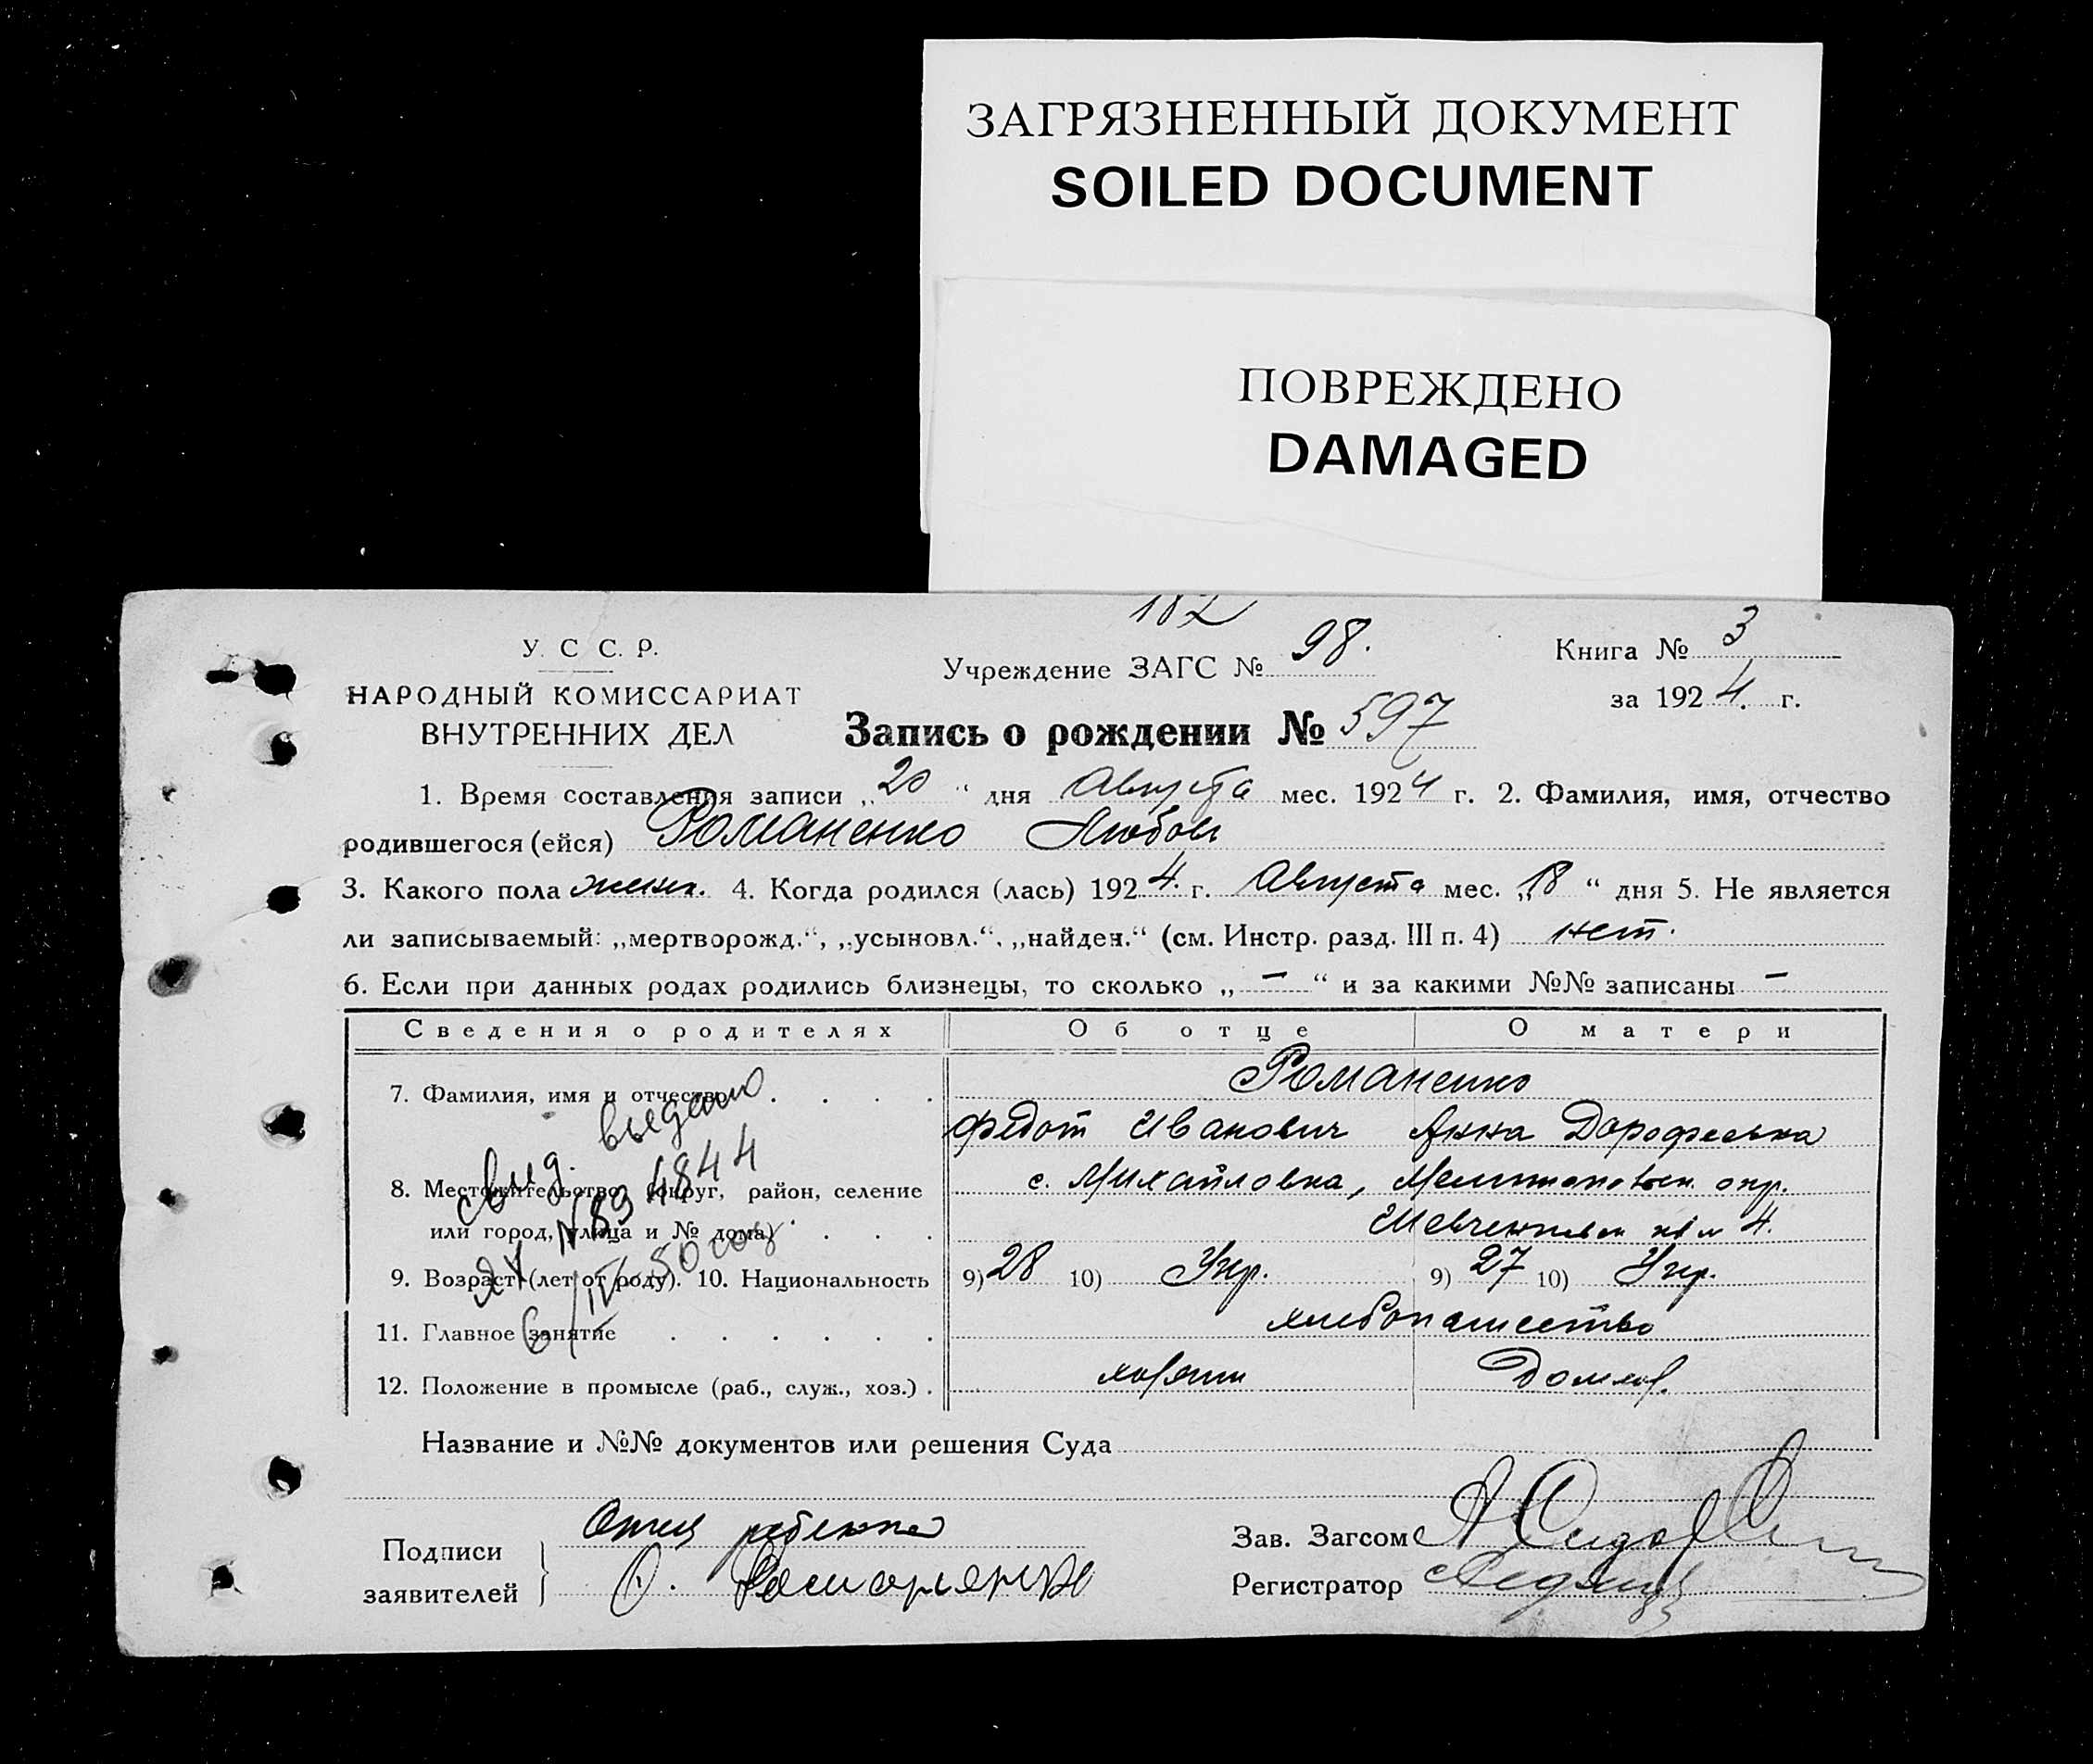 ЗАГРЯЗНЕННЫЙ ДОКУМЕНТ
SOILED DOCUMENT
ПОВРЕЖДЕНО
DAMAGED
182
У. С. С. Р.
НАРОДНЫЙ КОМИССАРИАТ
ВНУТРЕННИХ ДЕЛ
Учреждение ЗАГС № 98.
Книга № 3
за 1924. г.
Запись о рождении № 597
1. Время составления записи „20“ дня Августа мес. 1924 г. 2. Фамилия, имя, отчество
родившегося (ейся) Романенко Любовь
3. Какого пола женск. 4. Когда родился (лась) 1924. г. Августа мес. „18“ дня 5. Не является
ли записываемый: „мертворожд.“, „усыновл.“, „найден.“ (см. Инстр. разд. III п. 4) нет.
6. Если при данных родах родились близнецы, то сколько „—“ и за какими №№ записаны —
Сведения о родителях Об отце О матери
7. Фамилия, имя и отчество . . . . Романенко
Федот Иванович Анна Дорофеевна
8. Местожительство (округ, район, селение с. Михайловка, Мелитопольск. окр.
или город, улица и № дома) . . . 4.
9. Возраст (лет от роду). 10. Национальность 9) 28 10) Укр. 9) 27 10) Укр.
11. Главное занятие . . . . . . хлебопашество
12. Положение в промысле (раб., служ., хоз.) . хозяин Домхоз.
свид. выдано
№ 894844
Название и №№ документов или решения Суда
Подписи
заявителей
Отец ребенка
Романенко
Зав. Загсом
Регистратор